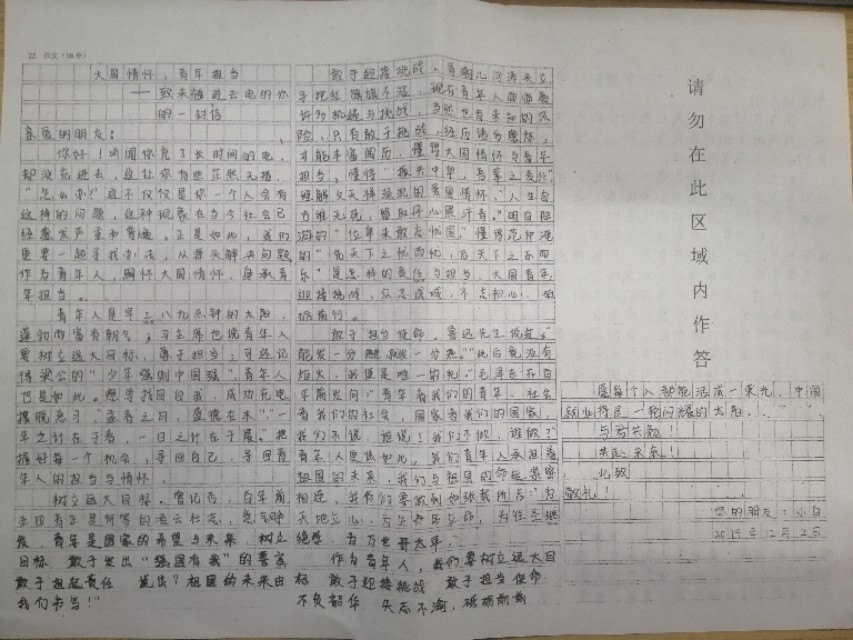 22. 作文（60分）
大国情怀，青年担当
——致未踏进去电的你
的一封信
亲爱的朋友：
你好！听闻你充了长时间的电，
却没充进去，这让你有些茫然无措，
"怎么办？"这不仅仅是你一个人会有
这样的问题，这种现象在当今社会已
经愈发严重和普遍。正是如此，我们
更要一起寻找办法，从源头解决问题
作为青年人，胸怀大国情怀，身承青
年担当。
青年人是早上八九点钟的太阳，
蓬勃而富有朝气；习主席也说青年人
要树立远大目标，勇于担当；可还记
得梁公的"少年强则中国强"，青年人
也是如此。想寻找回自我，成功充电
摆脱恶习。"孟春之日，盛德在木""一
年之计在于春，一日之计在于晨。"把
握好每一个机会，寻回自己，寻回青
年人的担当与情怀。
树立远大目标。曾记否，百年前
发，青年是国家的希望与未来，树立
目标，敢于发出"强国有我"的誓言
敢于担起责任，说出？祖国的未来由
我们书写！"
敢于迎接挑战。
手把红旗旗不湿，现在青年人面临着
许多机遇与挑战，当然也有未知的风
险，只有敢于挑战，经历诸多磨炼，
才能丰富阅历，懂得大国情怀与青年
担当，懂得"振兴中华，吾辈之责任"
理解文天祥深沉的爱国情怀，"人生自
古谁无死，留取丹心照汗青。"明白陆
游的"位卑未敢忘忧国。"懂得范仲淹
的"先天下之忧而忧，后天下之乐而
乐"是怎样的责任与担当，大国青年
迎接挑战，众志成城，不忘初心，砥
砺前行。
敢于担当使命。鲁迅先生说过："
能发一分热就发一分光。""此后竟没有
炬火，我便是唯一的光。"毛泽东在百
年前发问"青年看我们的青年，社会
看我们的社会，国家看我们的国家，
我们不说，谁说？我们不做，谁做？"
青年人更该如此，我们青年人承担着
祖国的未来，我们与祖国的命运紧密
相连，我们要做到如张载所言："为
天地立心，为生民立命，为往圣继
绝学，为万世开太平。"
作为青年人，我们要树立远大目
标，敢于迎接挑战，敢于担当使命
不负韶华，矢志不渝，砥砺前行
愿每个人都能活成一束光，中国
就必将是一轮闪耀的太阳。
与君共勉！
共赴未来！
此致
敬礼！
你的朋友：小白
2019年12月2日
请勿在此区域内作答